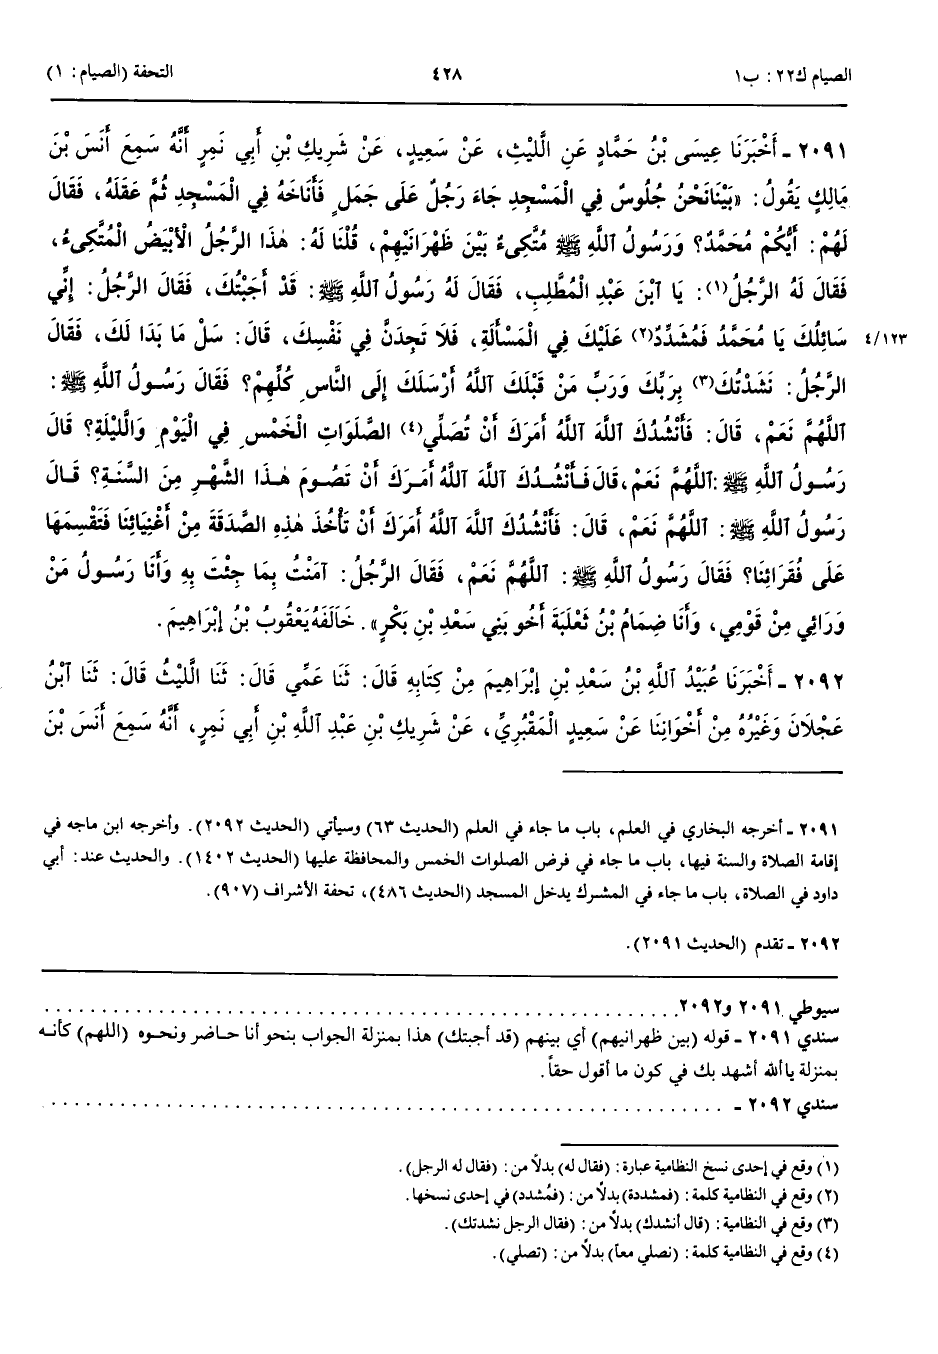 الصيام ك٢٢: ب١ ٤٢٨ التحفة (الصيام: ١)
٢٠٩١ ـ أَخْبَرَنَا عِيسَى بْنُ حَمَّادٍ عَنِ ٱللَّيْثِ، عَنْ سَعِيدٍ، عَنْ شَرِيكِ بْنِ أَبِي نَمِرٍ أَنَّهُ سَمِعَ أَنَسَ بْنَ
مَالِكٍ يَقُولُ: «بَيْنَانَحْنُ جُلُوسٌ فِي الْمَسْجِدِ جَاءَ رَجُلٌ عَلَى جَمَلٍ فَأَنَاخَهُ فِي الْمَسْجِدِ ثُمَّ عَقَلَهُ، فَقَالَ
لَهُمْ: أَيُّكُمْ مُحَمَّدٌ؟ وَرَسُولُ ٱللَّهِ ﷺ مُتَّكِىءٌ بَيْنَ ظَهْرَانَيْهِمْ، قُلْنَا لَهُ: هٰذَا الرَّجُلُ الْأَبْيَضُ الْمُتَّكِىءُ،
فَقَالَ لَهُ الرَّجُلُ(١): يَا ٱبْنَ عَبْدِ الْمُطَّلِبِ، فَقَالَ لَهُ رَسُولُ ٱللَّهِ ﷺ: قَدْ أَجَبْتُكَ، فَقَالَ الرَّجُلُ: إِنِّي
سَائِلُكَ يَا مُحَمَّدُ فَمُشَدِّدٌ(٢) عَلَيْكَ فِي الْمَسْأَلَةِ، فَلَا تَجِدَنَّ فِي نَفْسِكَ، قَالَ: سَلْ مَا بَدَا لَكَ، فَقَالَ ٤/١٢٣
الرَّجُلُ: نَشَدْتُكَ(٣) بِرَبِّكَ وَرَبِّ مَنْ قَبْلَكَ ٱللَّهُ أَرْسَلَكَ إِلَى النَّاسِ كُلِّهِمْ؟ فَقَالَ رَسُولُ ٱللَّهِ ﷺ:
ٱللَّهُمَّ نَعَمْ، قَالَ: فَأَنْشُدُكَ ٱللَّهَ ٱللَّهُ أَمَرَكَ أَنْ تُصَلِّيَ(٤) الصَّلَوَاتِ الْخَمْسَ فِي الْيَوْمِ وَالَّليْلَةِ؟ قَالَ
رَسُولُ ٱللَّهِ ﷺ:ٱللَّهُمَّ نَعَمْ،قَالَ فَأَنْشُدُكَ ٱللَّهَ ٱللَّهُ أَمَرَكَ أَنْ تَصُومَ هٰذَا الشَّهْرِ مِنَ السَّنَةِ؟ قَالَ
رَسُولُ ٱللَّهِ ﷺ: ٱللَّهُمَّ نَعَمْ، قَالَ: فَأَنْشُدُكَ ٱللَّهَ ٱللَّهُ أَمَرَكَ أَنْ تَأْخُذَ هٰذِهِ الصَّدَقَةَ مِنْ أَغْنِيَائِنَا فَتَقْسِمَهَا
عَلَى فُقَرَائِنَا؟ فَقَالَ رَسُولُ ٱللَّهِ ﷺ: ٱللَّهُمَّ نَعَمْ، فَقَالَ الرَّجُلُ: آمَنْتُ بِمَا جِئْتَ بِهِ وَأَنَا رَسُولُ مَنْ
وَرَائِي مِنْ قَوْمِي، وَأَنَا ضِمَامُ بْنُ ثَعْلَبَةَ أَخُو بَنِي سَعْدِ بْنِ بَكْرٍ». خَالَفَهُ يَعْقُوبُ بْنُ إِبْرَاهِيمَ.
٢٠٩٢ ـ أَخْبَرَنَا عُبَيْدُ ٱللَّهِ بْنُ سَعْدِ بْنِ إِبْرَاهِيمَ مِنْ كِتَابِهِ قَالَ: ثَنَا عَمِّي قَالَ: ثَنَا الَّليْثُ قَالَ: ثَنَا ٱبْنُ
عَجْلَانَ وَغَيْرُهُ مِنْ أَخْوَانِنَا عَنْ سَعِيدٍ الْمَقْبُرِيِّ، عَنْ شَرِيكِ بْنِ عَبْدِ ٱللَّهِ بْنِ أَبِي نَمِرٍ، أَنَّهُ سَمِعَ أَنَسَ بْنَ
٢٠٩١ ـ أخرجه البخاري في العلم، باب ما جاء في العلم (الحديث ٦٣) وسيأتي (الحديث ٢٠٩٢). وأخرجه ابن ماجه في
إقامة الصلاة والسنة فيها، باب ما جاء في فرض الصلوات الخمس والمحافظة عليها (الحديث ١٤٠٢). والحديث عند: أبي
داود في الصلاة، باب ما جاء في المشرك يدخل المسجد (الحديث ٤٨٦)، تحفة الأشراف (٩٠٧).
٢٠٩٢ ـ تقدم (الحديث ٢٠٩١).
سيوطي ٢٠٩١ و٢٠٩٢ ..........
سندي ٢٠٩١ ـ قوله (بين ظهرانيهم) أي بينهم (قد أجبتك) هذا بمنزلة الجواب بنحو أنا حاضر ونحوه (اللهم) كأنه
بمنزلة ياألله أشهد بك في كون ما أقول حقاً.
سندي ٢٠٩٢ ـ ..........
(١) وقع في إحدى نسخ النظامية عبارة: (فقال له) بدلاً من: (فقال له الرجل).
(٢) وقع في النظامية كلمة: (فمشددة) بدلاً من: (فمُشدد) في إحدى نسخها.
(٣) وقع في النظامية: (قال أنشدك) بدلاً من: (فقال الرجل نشدتك).
(٤) وقع في النظامية كلمة: (نصلي معاً) بدلاً من: (تصلي).